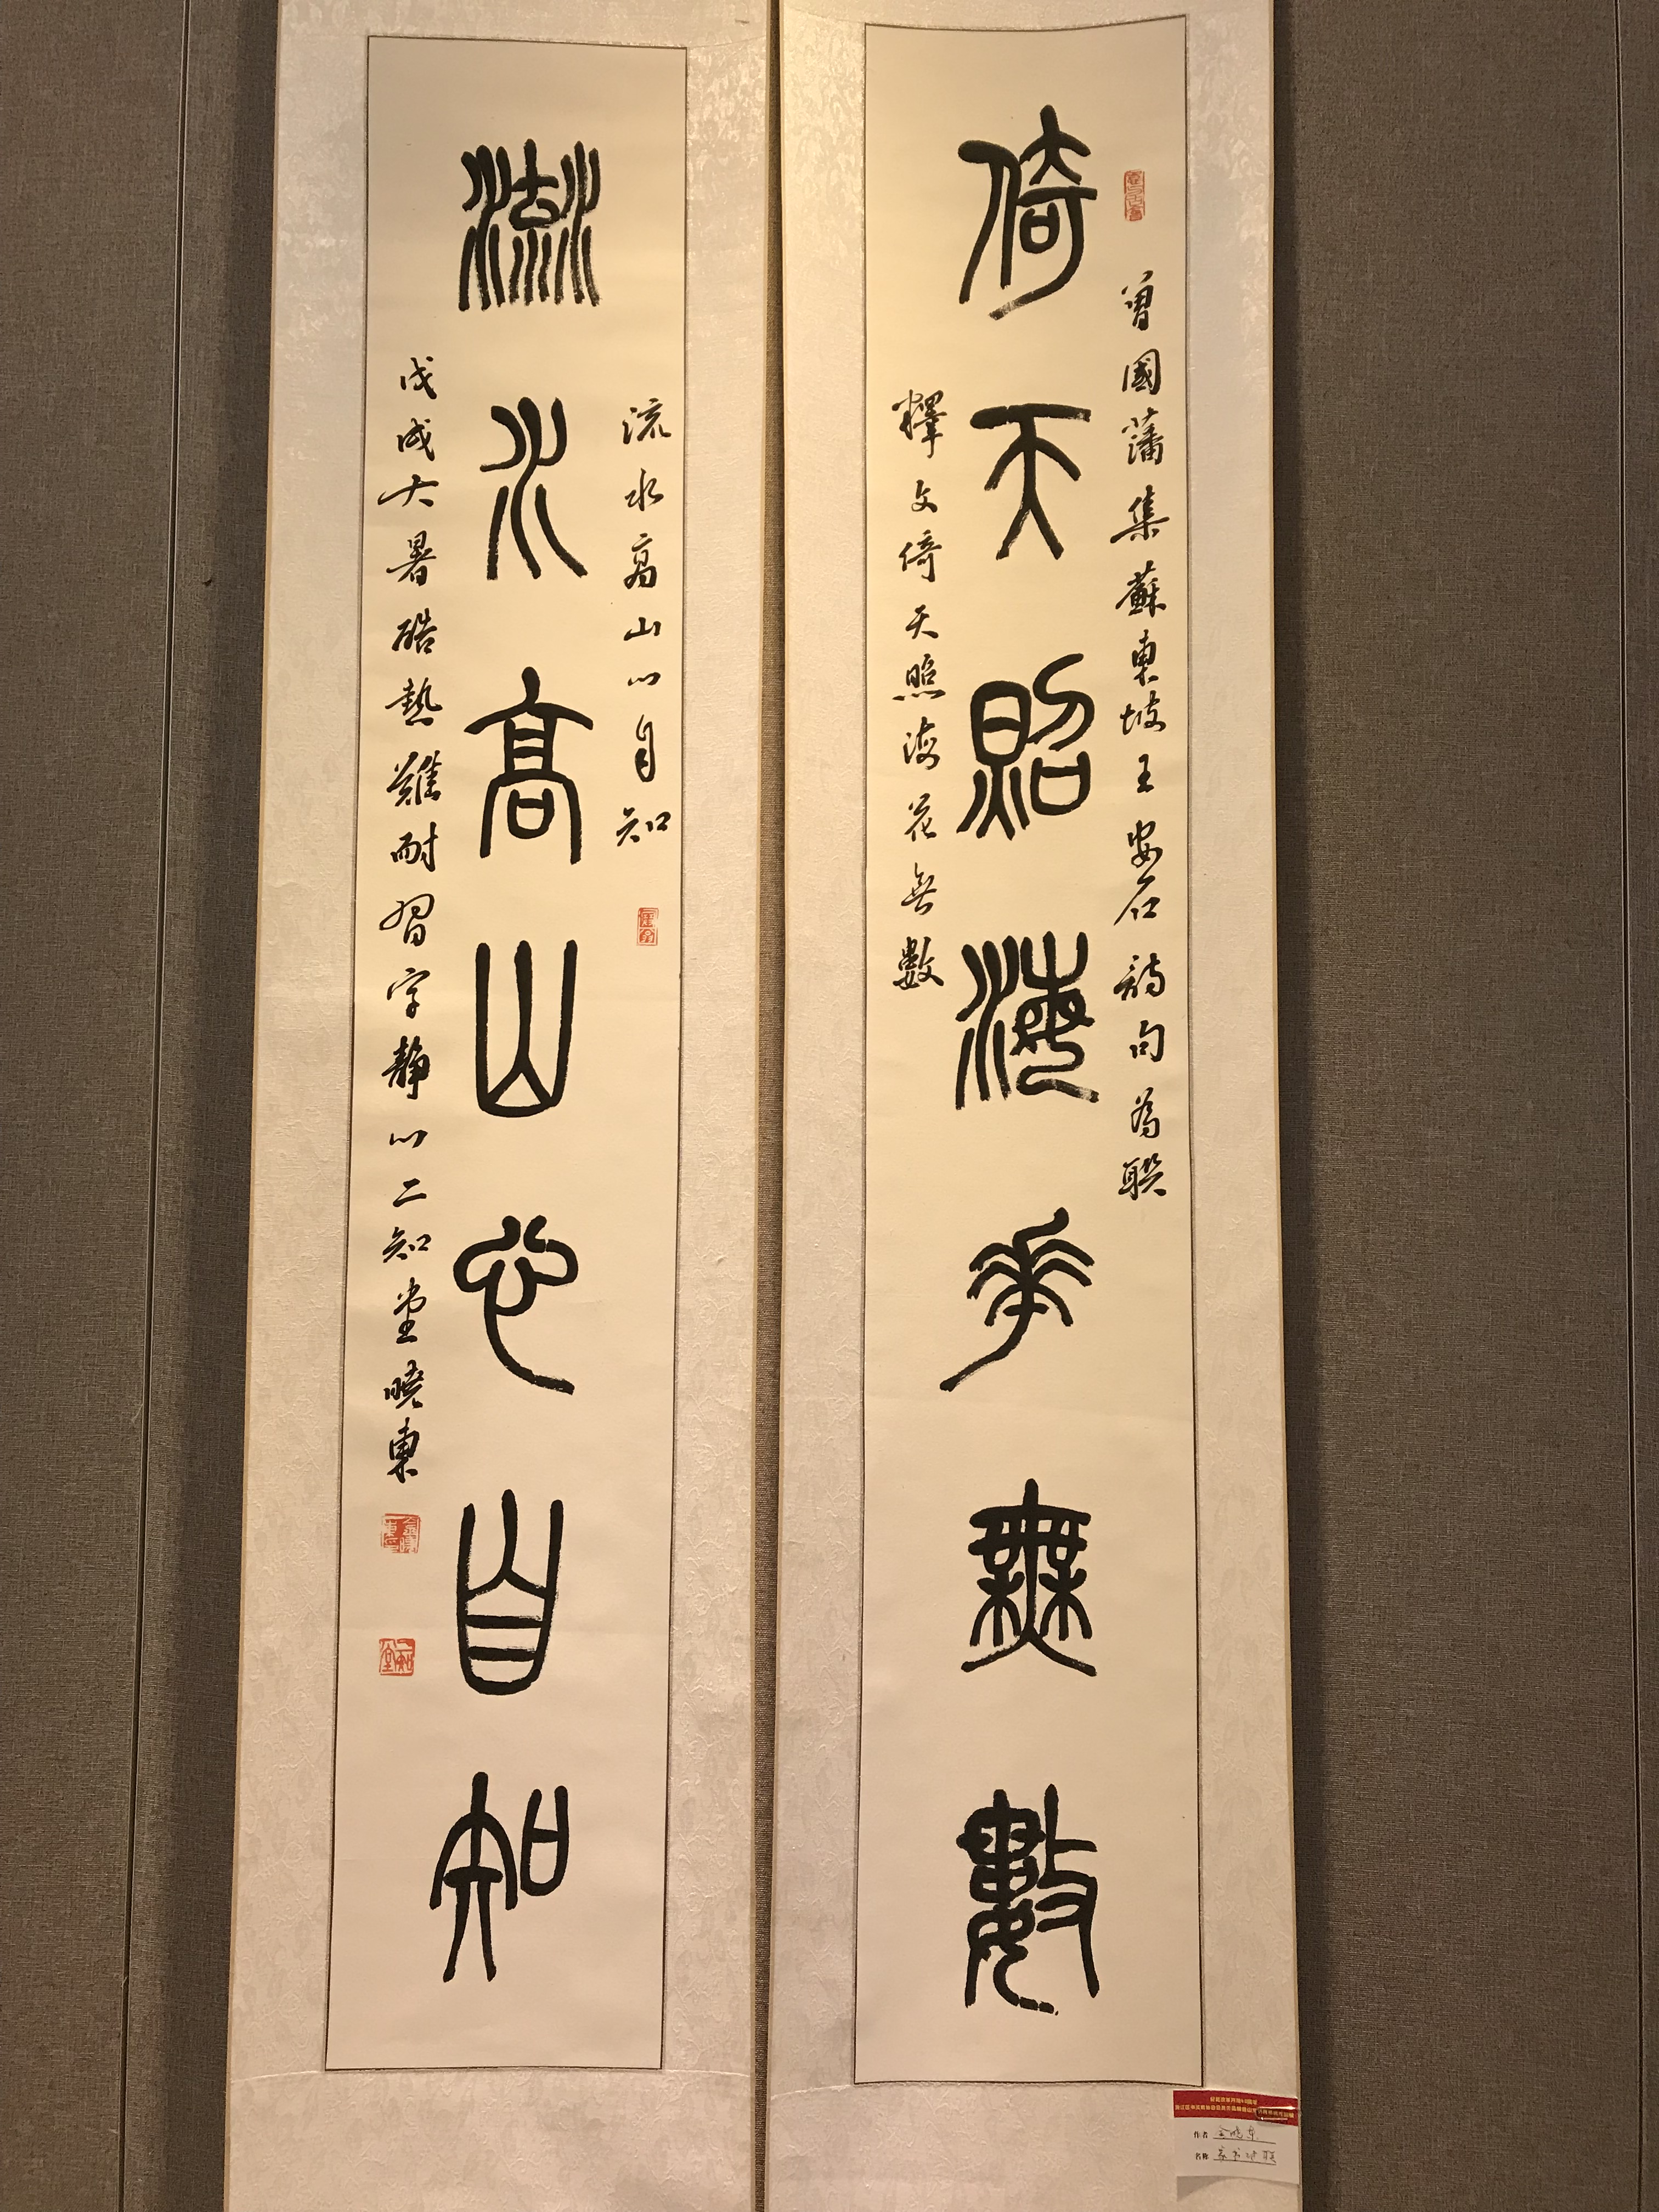 曾國藩集蘇東坡王安石詩句為聯
倚天照海花無數
釋文倚天照海花無數
流水高山心自知
流水高山心自知
戊戌大暑酷熱難耐習字靜心二知堂曉東
二知堂
作者 金曉东
名称 篆书对联